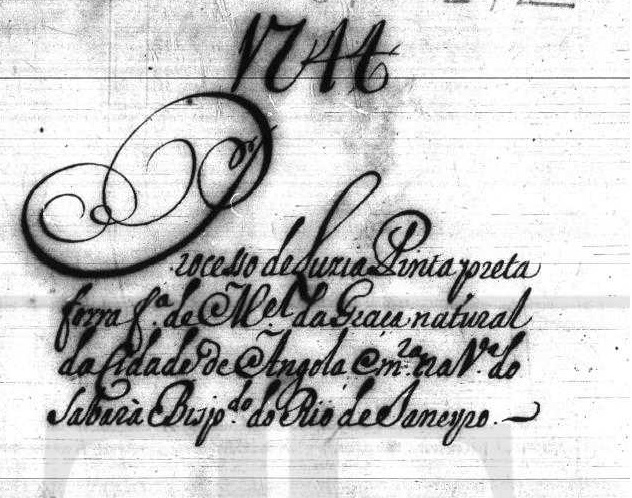 1744
Processo de Luzia Pinta preta
forra f.ª de M.el da Graça natural
da Cidade de Angola e m.ra na V.ª do
Sabarà Bisp.do do Rio de Janeyro.